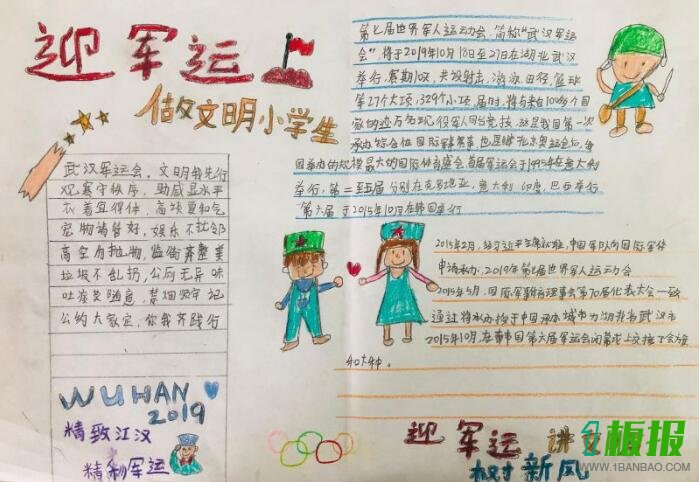 迎军运
做文明小学生
武汉军运会，文明我先行
观赛守秩序，助威显水平
衣着宜得体，高块更和气
宠物猪管好，娱乐不扰邻
高空勿抛物，监街齐整美
垃圾不乱扔，公厕无异味
吐痰莫随意，禁烟牢记
公约大家定，你我齐践行
WUHAN
2019
精致江汉
精制军运
第七届世界军人运动会，简称"武汉军运
会"，将于2019年10月18日至27日在湖北武汉
举行，赛期10天，共设射击、游泳、田径、篮球
等27个大项，329个小项。届时，将有来自100多个国
家的近万名现役军人同台竞技，这是我国第一次
承办综合性国际军事赛事，也是继北京奥运会后，中
国举办的规模最大的国际体育盛会，首届军运会于1995年在意大利
举行，第二至五届分别在克罗地亚，意大利，印度，巴西举行
第六届于2015年10月在韩国举行
2015年2月，经习近平主席批准，中国军队向国际军体
申请承办，2019年第七届世界军人运动会
2015年5月，国际军事体育理事会第70届代表大会一致
通过将承办权授于中国，承办城市为湖北省武汉市
2015年10月，在韩国第六届军运会闭幕式上交接了会旗
和火种。
迎军运 讲文
树新风
板报
WWW.1BANBAO.COM